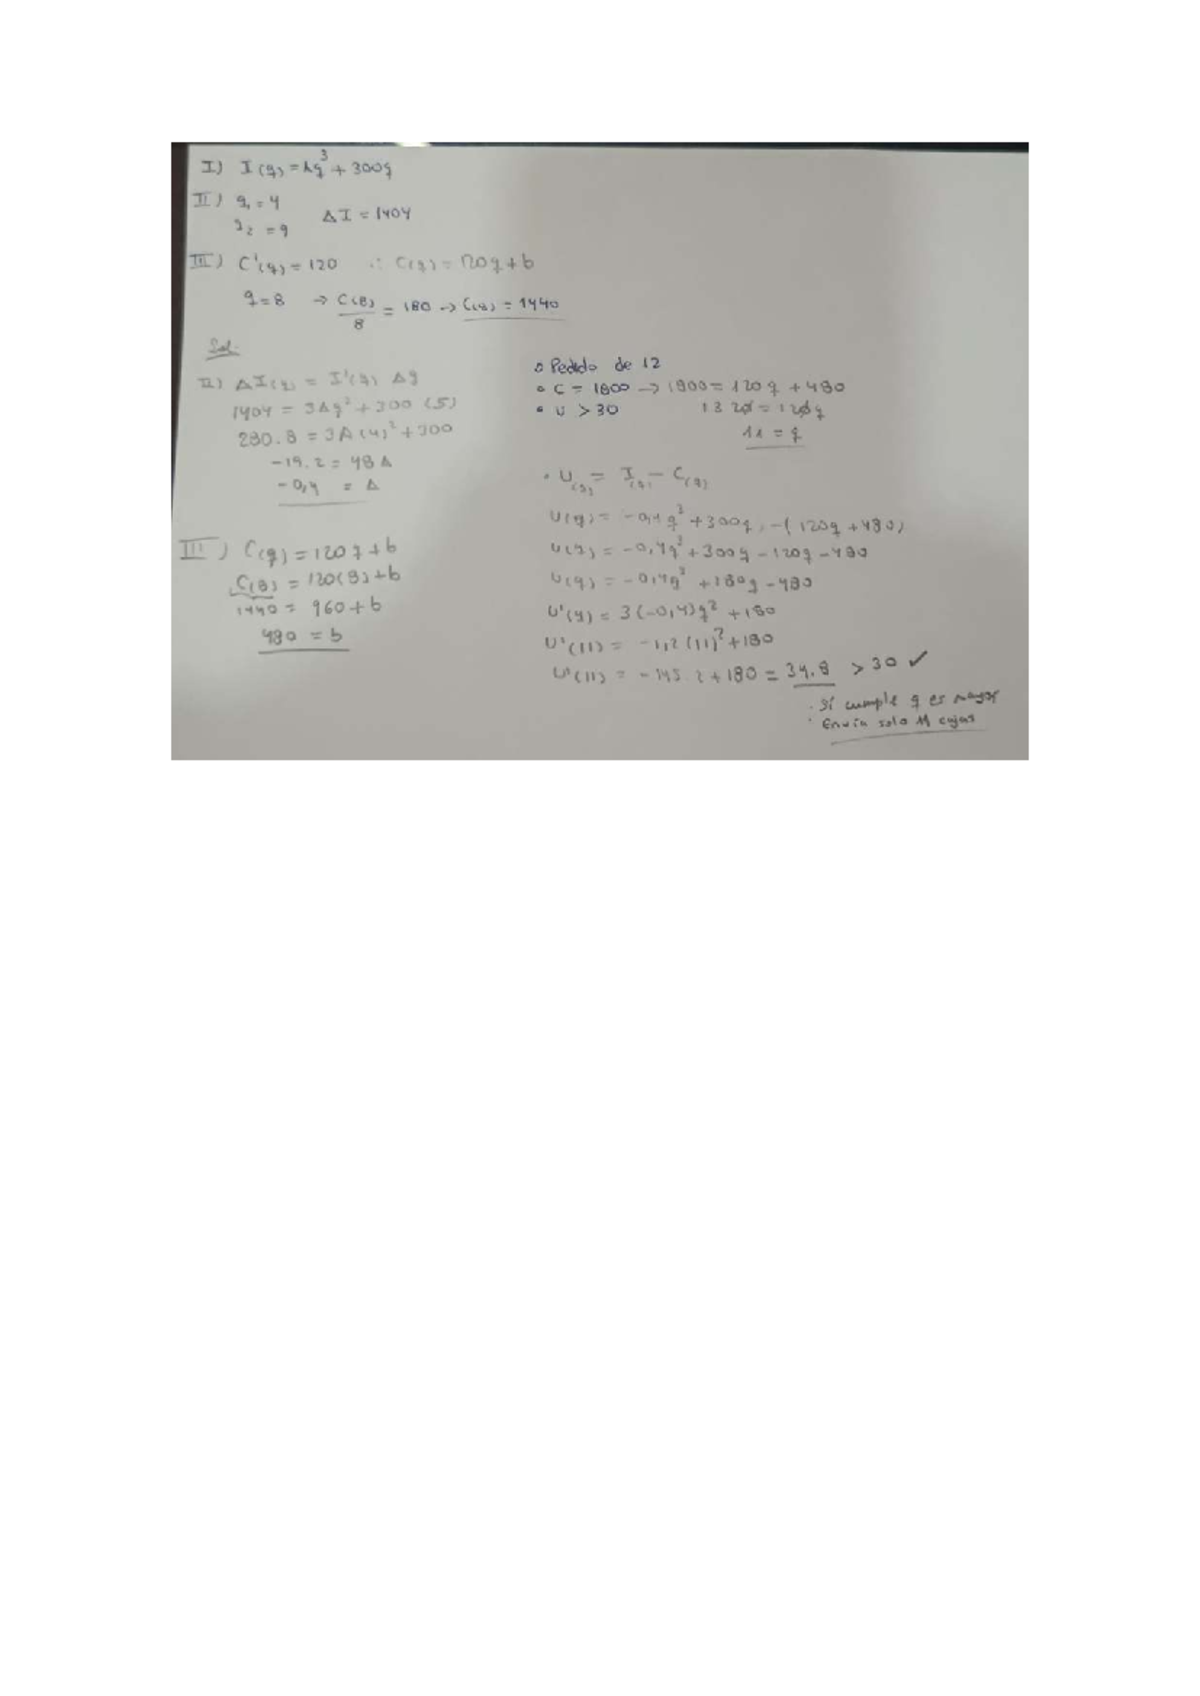 I) I(q) = Aq³ + 300q
II) q₁ = 4
q₂ = 9
ΔI = 1404
III) C'(q) = 120 ∴ C(q) = 120q + b
q = 8 → C(8)/8 = 180 → C(8) = 1440
Sol.
II) ΔI(q) = I'(q) Δq
1404 = 3Aq² + 300 (5)
280.8 = 3A(4)² + 300
-19.2 = 48A
-0,4 = A
III) C(q) = 120q + b
C(8) = 120(8) + b
1440 = 960 + b
480 = b
Pedido de 12
• C = 1800 → 1800 = 120q + 480
• U > 30
1320 = 120q
11 = q
• U(q) = I(q) - C(q)
U(q) = -0,4q³ + 300q - (120q + 480)
U(q) = -0,4q³ + 300q - 120q - 480
U(q) = -0,4q³ + 180q - 480
U'(q) = 3(-0,4)q² + 180
U'(11) = -1,2(11)² + 180
U'(11) = -145.2 + 180 = 34.8 > 30 ✓
· Sí cumple q es mayor
· Envía solo 11 cajas